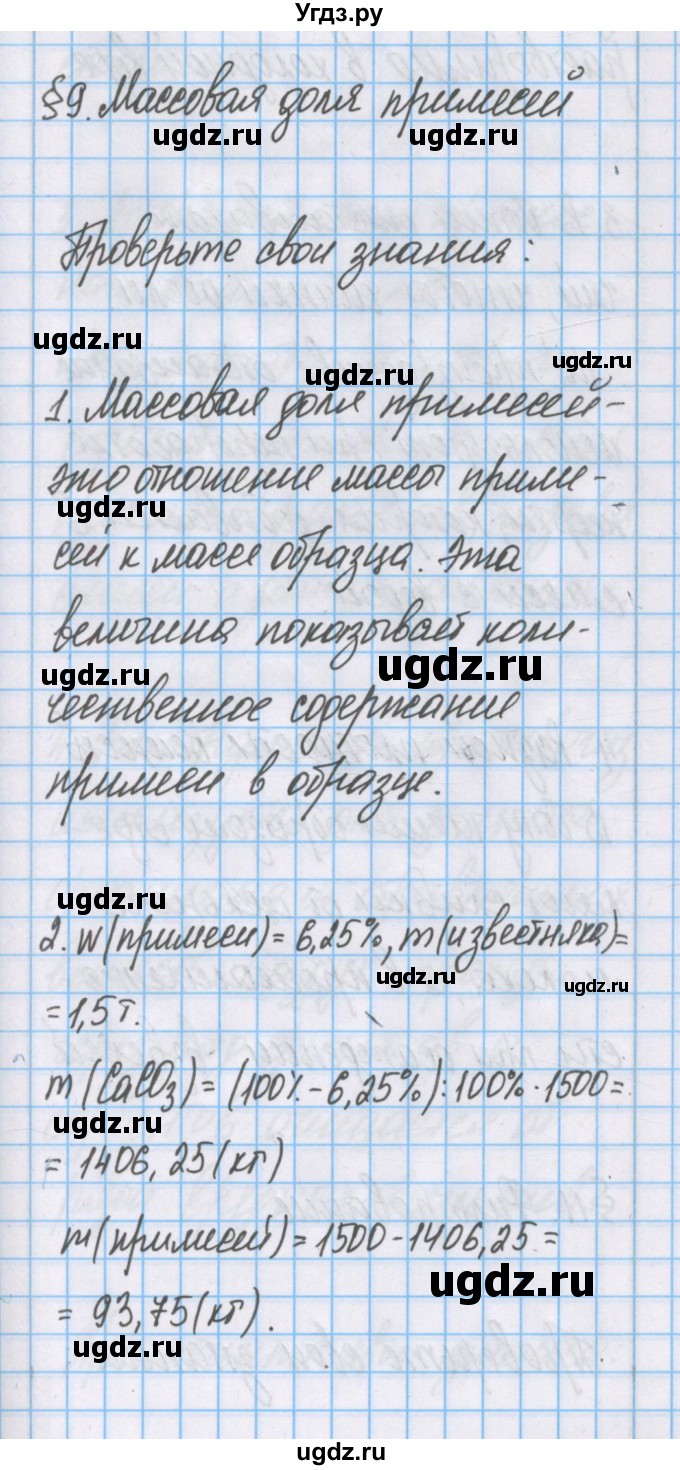 Угдз.ру
§9. Массовая доля примесей
ugdz.ru ugdz.ru
Проверьте свои знания:
ugdz.ru ugdz.ru ugdz.ru
1. Массовая доля примесей-
это отношение массы приме-
ugdz.ru
сей к массе образца. Эта
величина показывает коли-
ugdz.ru ugdz.ru
чественное содержание
примеси в образце.
ugdz.ru
2. w(примеси)=6,25%, m(известняка)=
ugdz.ru ugdz.ru
=1,5т.
m(CaCO3)=(100%-6,25%):100%·1500=
ugdz.ru
=1406,25(кг)
m(примесей)=1500-1406,25=
ugdz.ru
=93,75(кг).
ugdz.ru
ugdz.ru